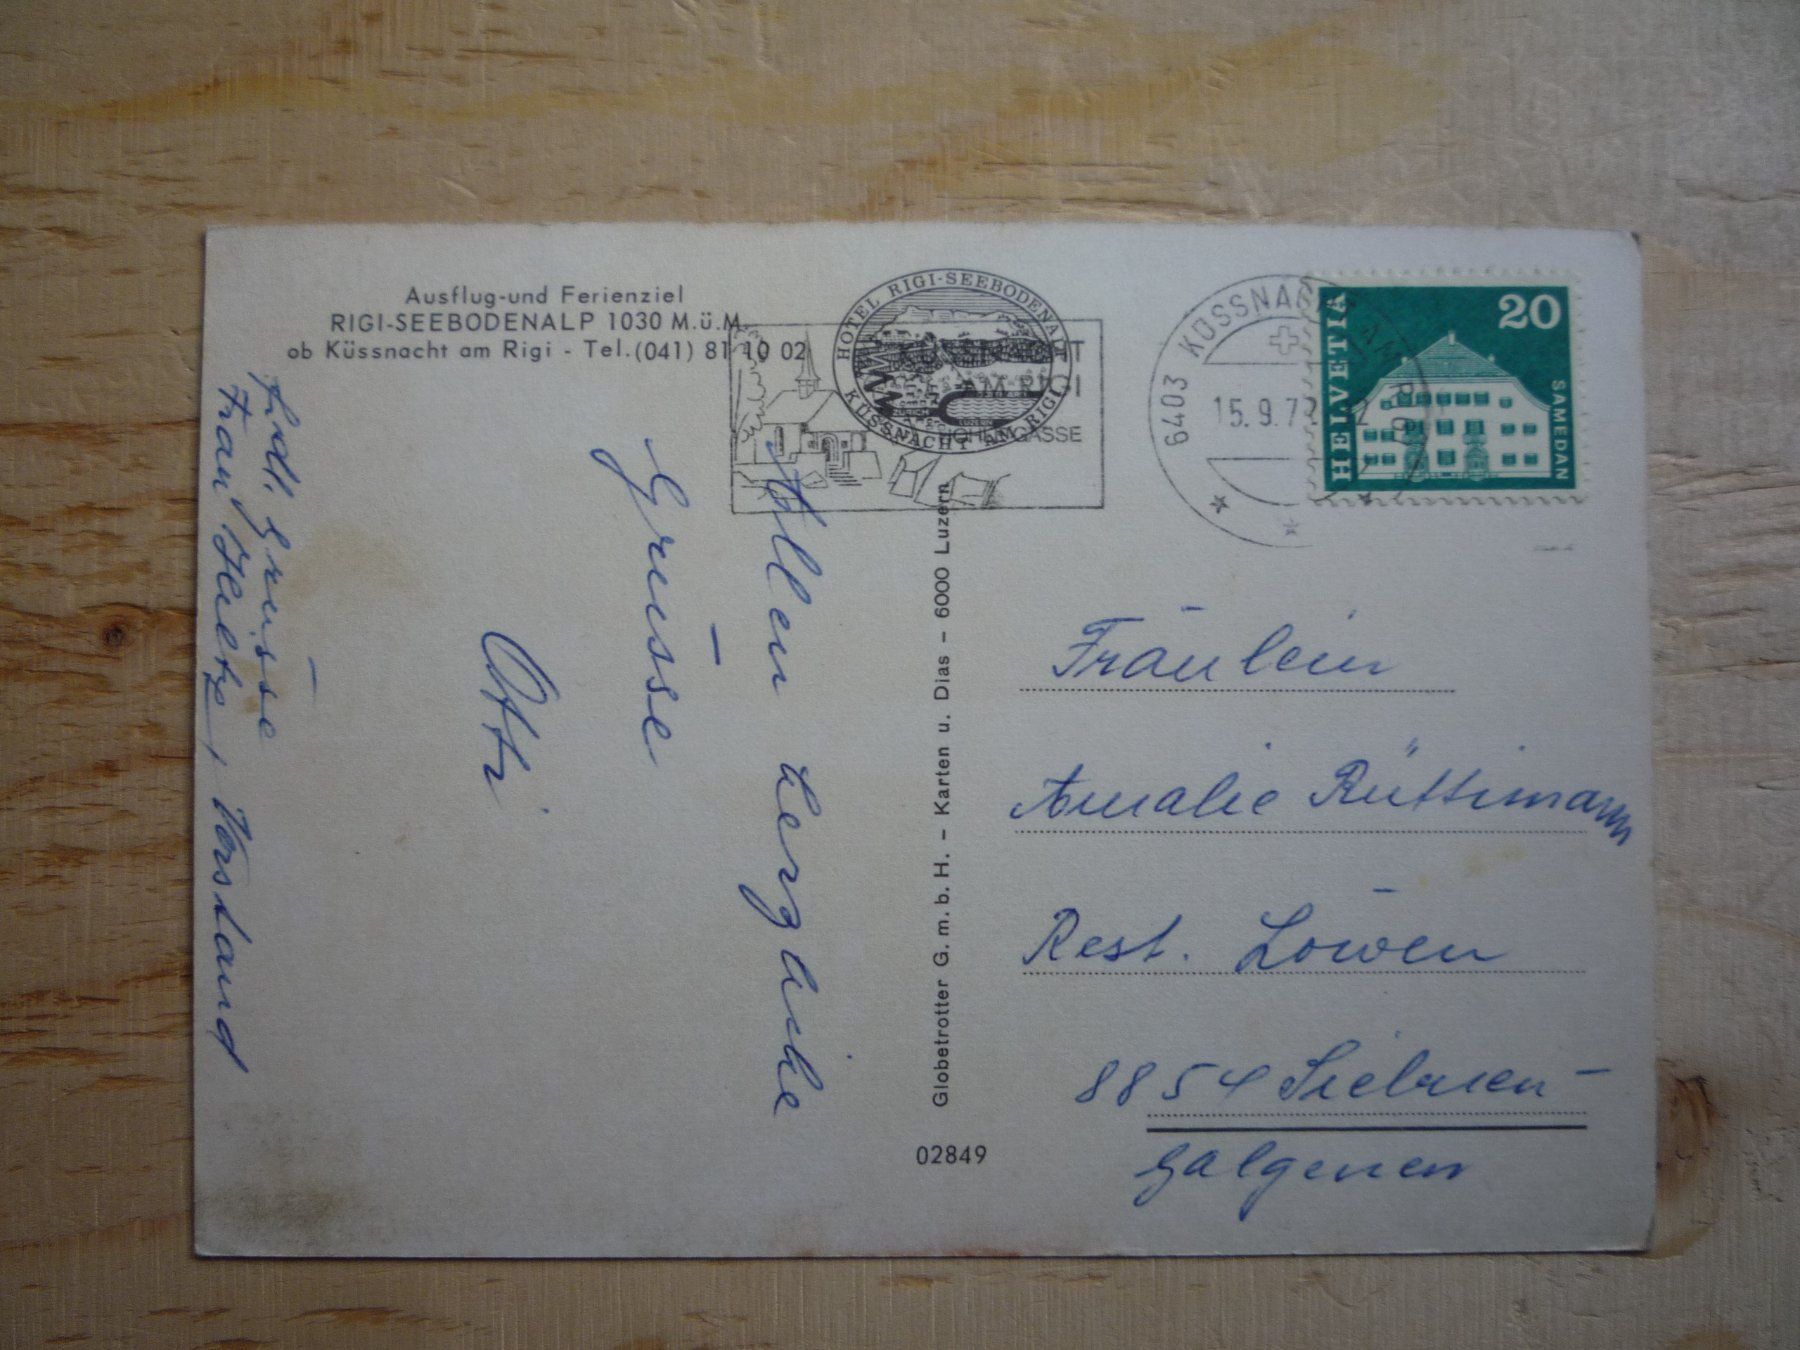 Ausflug-und Ferienziel
RIGI-SEEBODENALP 1030 M.ü.M.
ob Küssnacht am Rigi - Tel. (041) 81 10 02
HOTEL RIGI-SEEBODENALP
KÜSSNACHT AM RIGI
ZÜRICH
LUZERN
AM RIGI
GASSE
6403 KÜSSNACHT AM RIGI
15.9.7
HELVETIA
20
SAMEDAN
Allen
Grüsse
Otti
Frdl. Grüsse
Frau
Globetrotter G.m.b.H. – Karten u. Dias – 6000 Luzern
02849
Fräulein
Amalie Rüttimann
Rest. Löwen
8854 Siebnen-
Galgenen